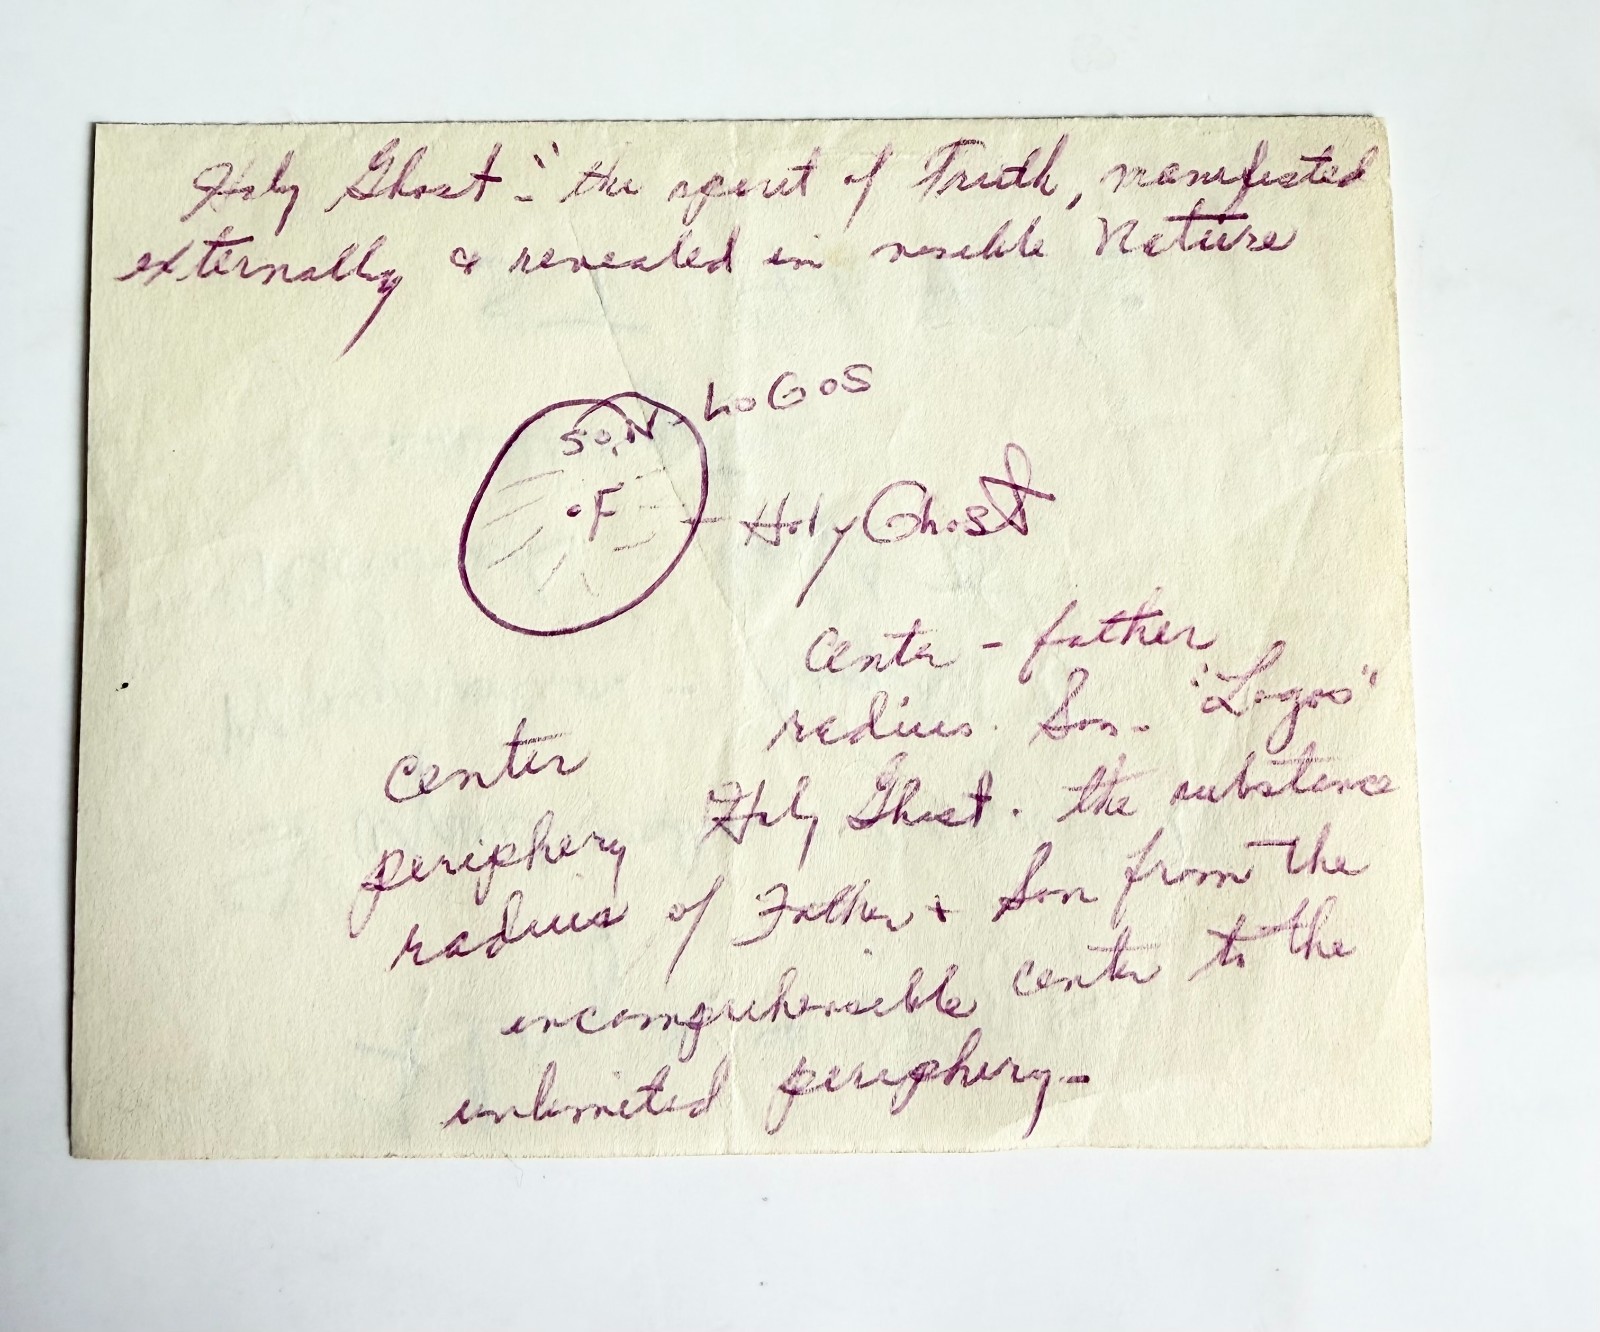 Holy Ghost - "the spirit of Truth, manifested
externally & revealed in visible Nature
SON - LOGOS
F
- Holy Ghost
Center - father
radius. Son - "Logos"
center
Holy Ghost. the substance
periphery
radius of Father + Son from the
incomprehensible center to the
unlimited periphery -